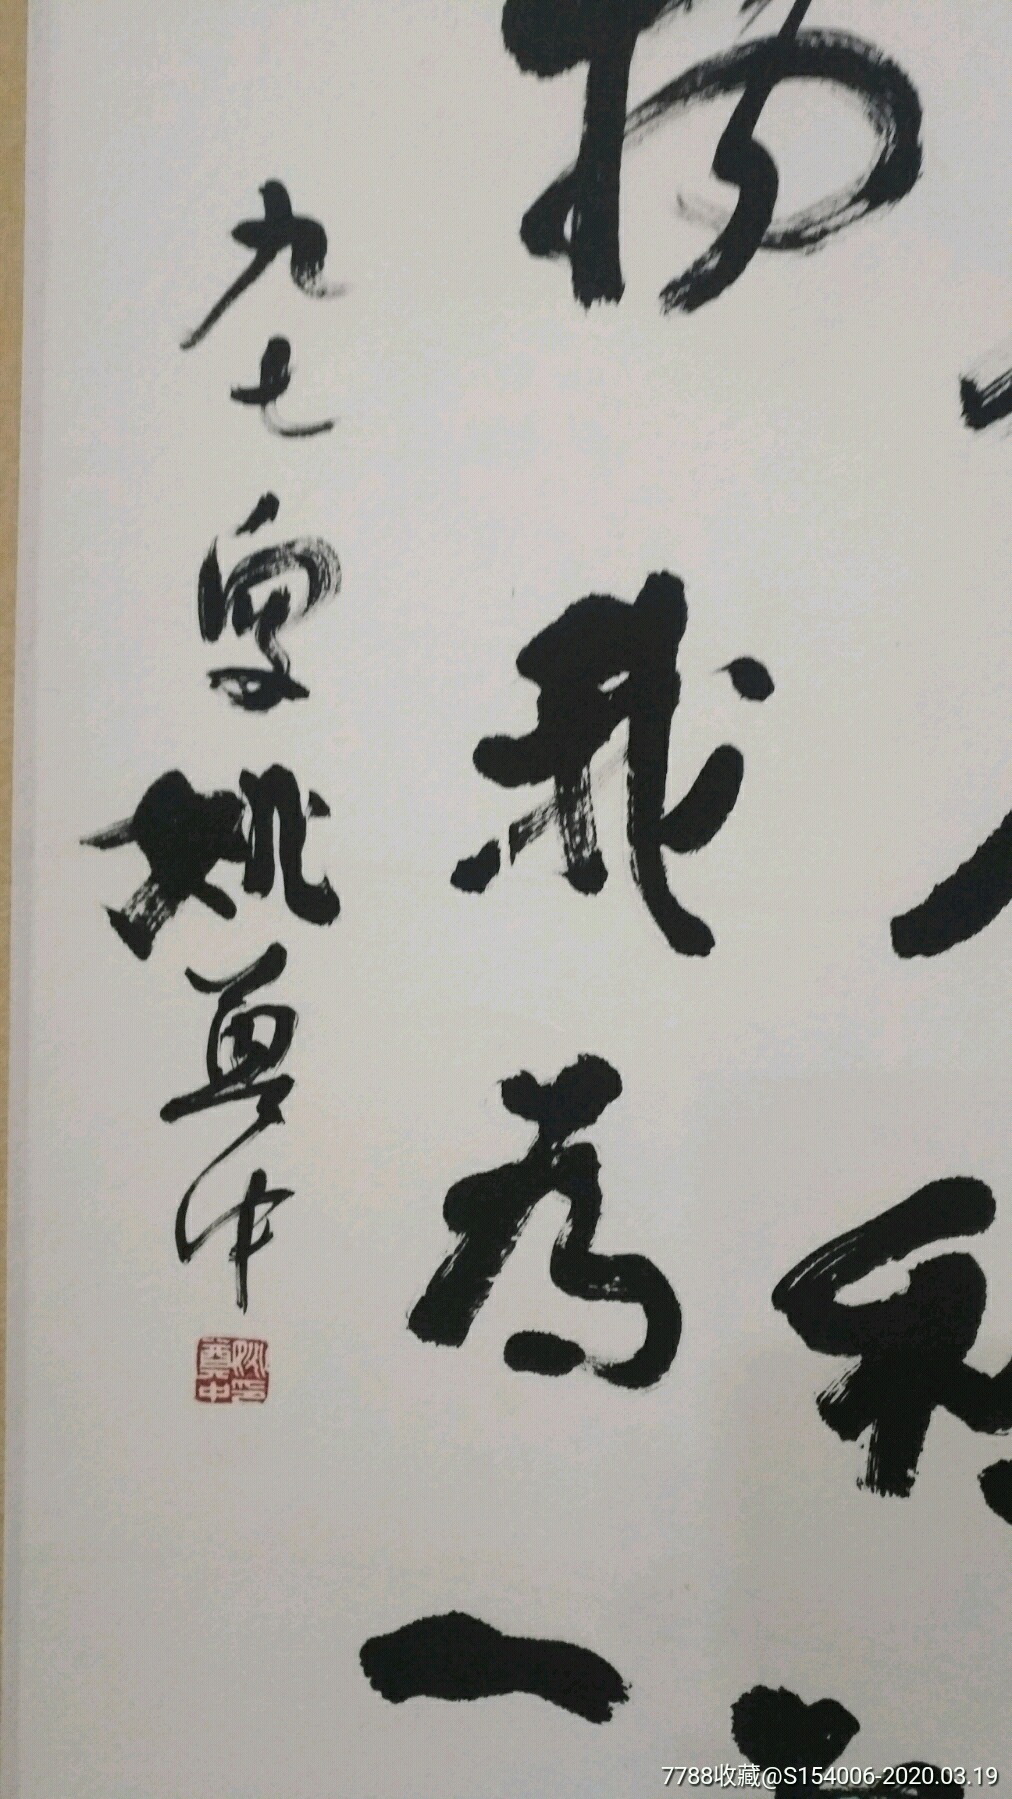 物我為一
九七夏姚尊中
姚印尊中
7788收藏@S154006-2020.03.19